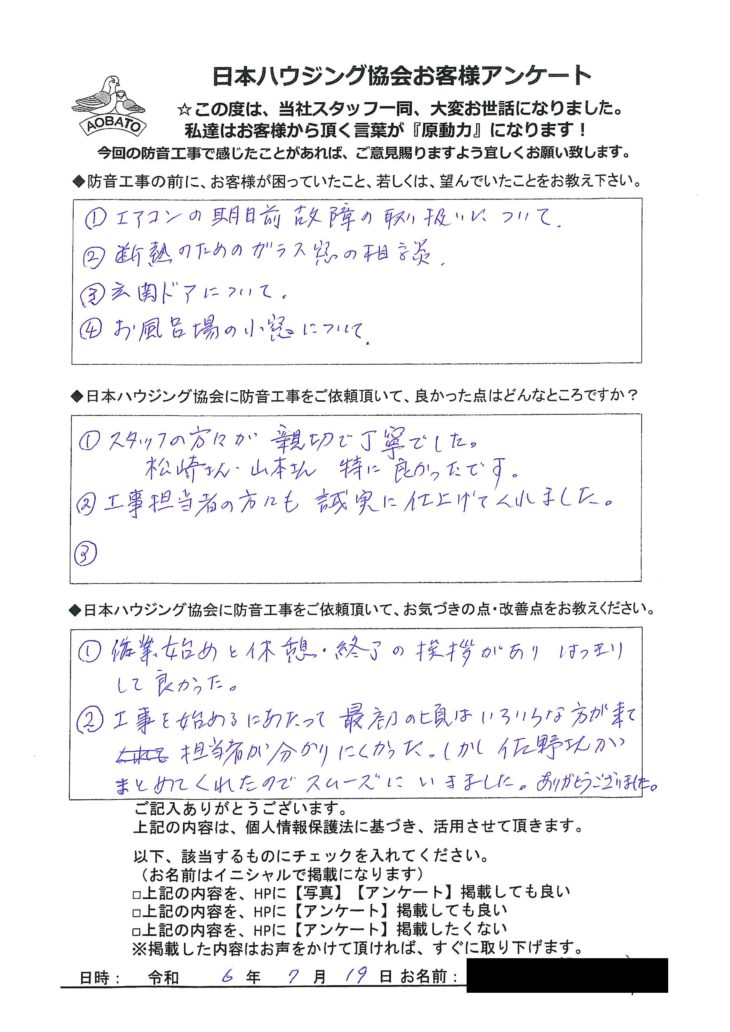 日本ハウジング協会お客様アンケート
AOBATO
☆この度は、当社スタッフ一同、大変お世話になりました。
私達はお客様から頂く言葉が『原動力』になります！
今回の防音工事で感じたことがあれば、ご意見賜りますよう宜しくお願い致します。
◆防音工事の前に、お客様が困っていたこと、若しくは、望んでいたことをお教え下さい。
① エアコンの期日前故障の取り扱いについて.
② 断熱のためのガラス窓の相談.
③ 玄関ドアについて.
④ お風呂場の小窓について.
◆日本ハウジング協会に防音工事をご依頼頂いて、良かった点はどんなところですか？
① スタッフの方々が 親切で丁寧でした。
松崎さん・山本さん 特に良かったです。
② 工事担当者の方にも 誠実に仕上げてくれました。
③
◆日本ハウジング協会に防音工事をご依頼頂いて、お気づきの点・改善点をお教えください。
① 作業始めと休憩・終了の挨拶があり はっきり
して良かった。
② 工事を始めるにあたって 最初の頃はいろいろな方が来て
担当者が分かりにくかった。しかし 佐野さんが
まとめてくれたのでスムーズにいきました。ありがとうございました。
ご記入ありがとうございます。
上記の内容は、個人情報保護法に基づき、活用させて頂きます。
以下、該当するものにチェックを入れてください。
（お名前はイニシャルで掲載になります）
□上記の内容を、HPに【写真】【アンケート】掲載しても良い
□上記の内容を、HPに【アンケート】掲載しても良い
□上記の内容を、HPに【アンケート】掲載したくない
※掲載した内容はお声をかけて頂ければ、すぐに取り下げます。
日時： 令和 6 年 7 月 19 日 お名前：